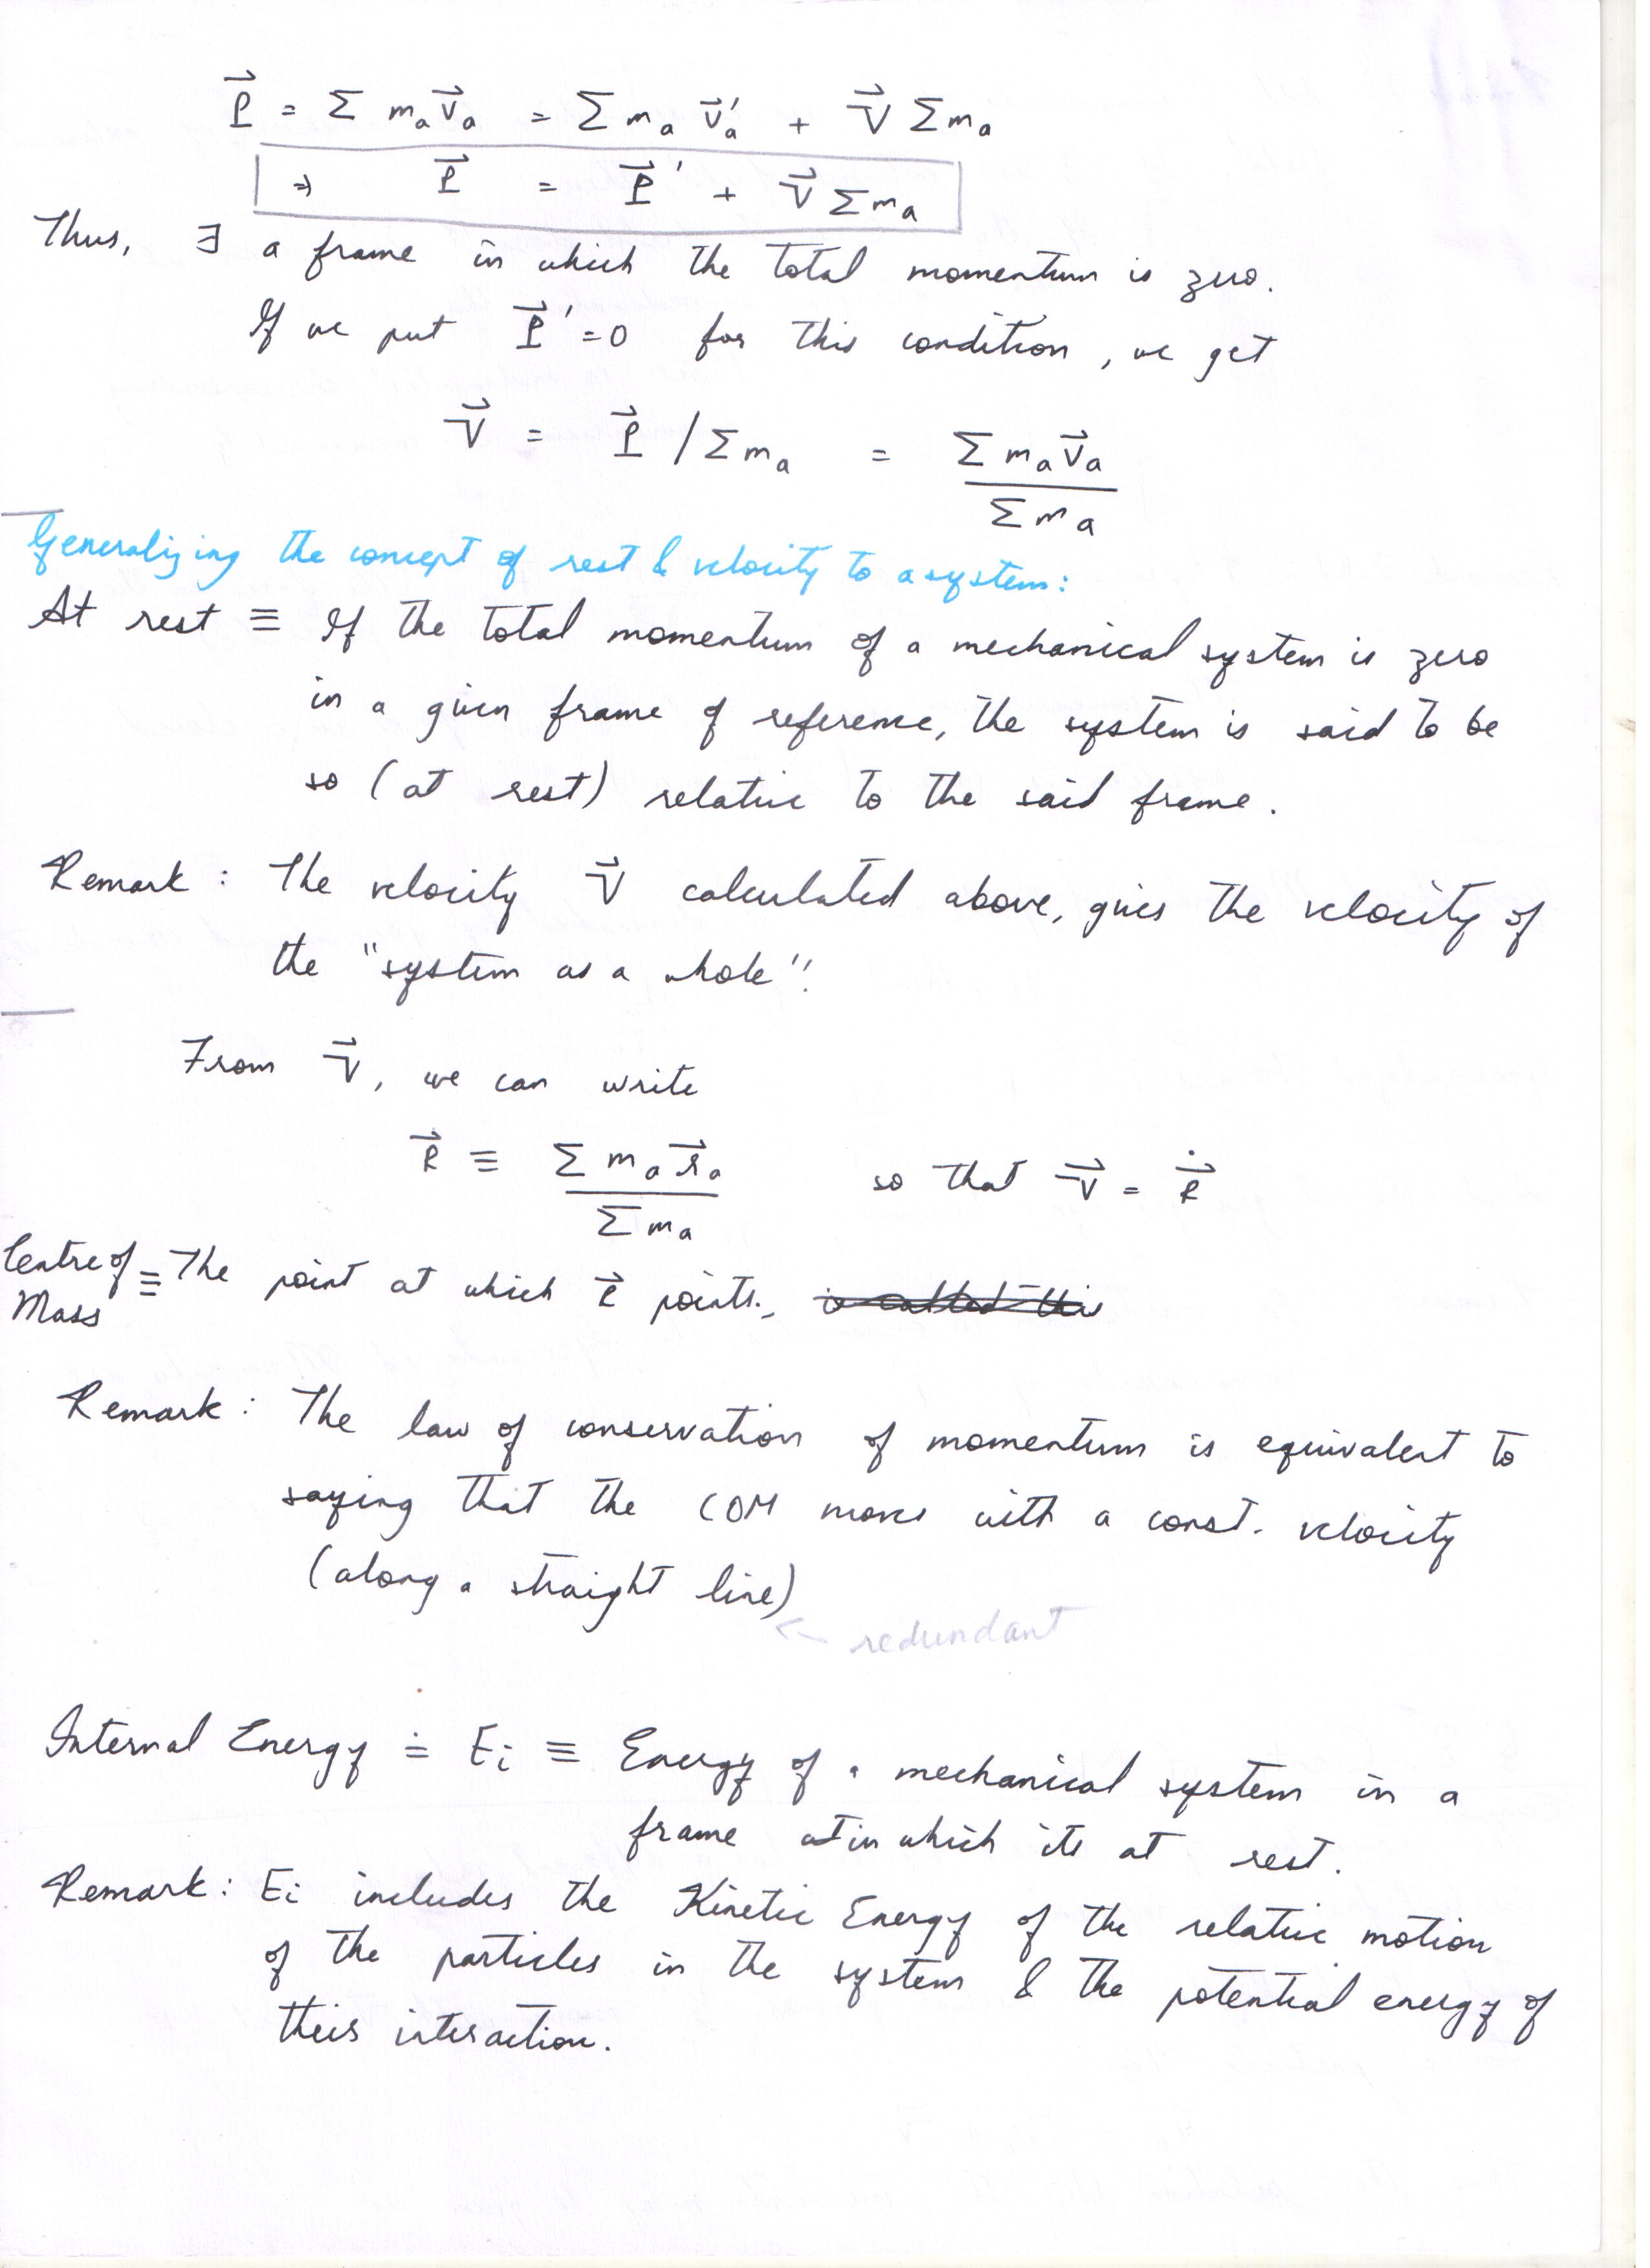 P⃗ = Σ mₐv⃗ₐ = Σ mₐ v⃗ₐ' + V⃗ Σmₐ
⇒ P⃗ = P⃗' + V⃗ Σmₐ
Thus, ∃ a frame in which the total momentum is zero.
If we put P⃗' = 0 for this condition, we get
V⃗ = P⃗ / Σmₐ = Σ mₐv⃗ₐ / Σmₐ
Generalizing the concept of rest & velocity to a system:
At rest ≡ If the total momentum of a mechanical system is zero
in a given frame of reference, the system is said to be
so (at rest) relative to the said frame.
Remark : The velocity V⃗ calculated above, gives the velocity of
the "system as a whole".
From V⃗, we can write
R⃗ ≡ Σ mₐr⃗ₐ / Σmₐ so that V⃗ = Ṙ⃗
Centre of Mass ≡ The point at which R⃗ points., is called this
Remark : The law of conservation of momentum is equivalent to
saying that the COM moves with a const. velocity
(along a straight line)
← redundant
Internal Energy ≐ Eᵢ ≡ Energy of a mechanical system in a
frame at in which its at rest.
Remark : Eᵢ includes the Kinetic Energy of the relative motion
of the particles in the system & the potential energy of
their interaction.